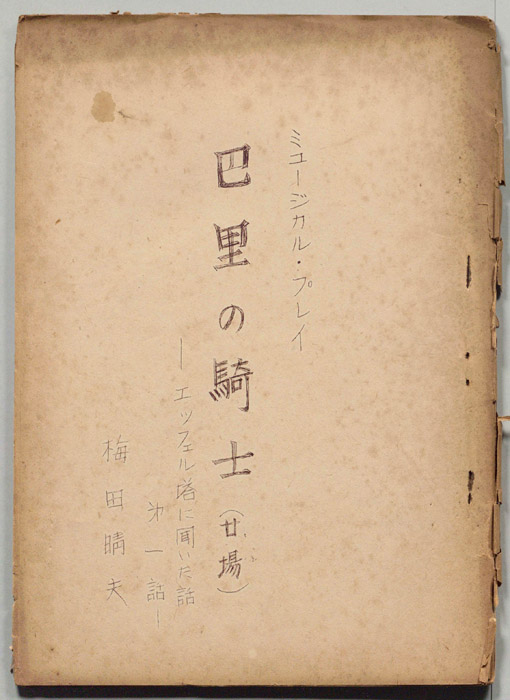 ミュージカル・プレイ
巴里の騎士(廿場)
―エッフェル塔に聞いた話
才一話―
梅田晴夫